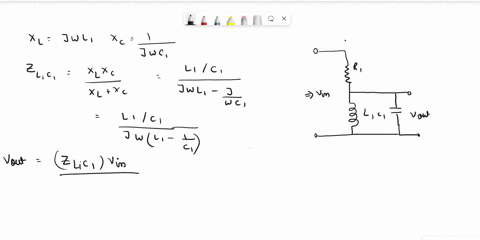 X_L = JWL_1 X_C = 1/JWC_1
Z_{L_1C_1} = X_L X_C / X_L + X_C = L_1/C_1 / JWL_1 - J/WC_1
= L_1/C_1 / JW(L_1 - 1/C_1)
Vout = (Z_{L_1C_1}) Vin
R_1
⇒ Vin
L_1 C_1 Vout